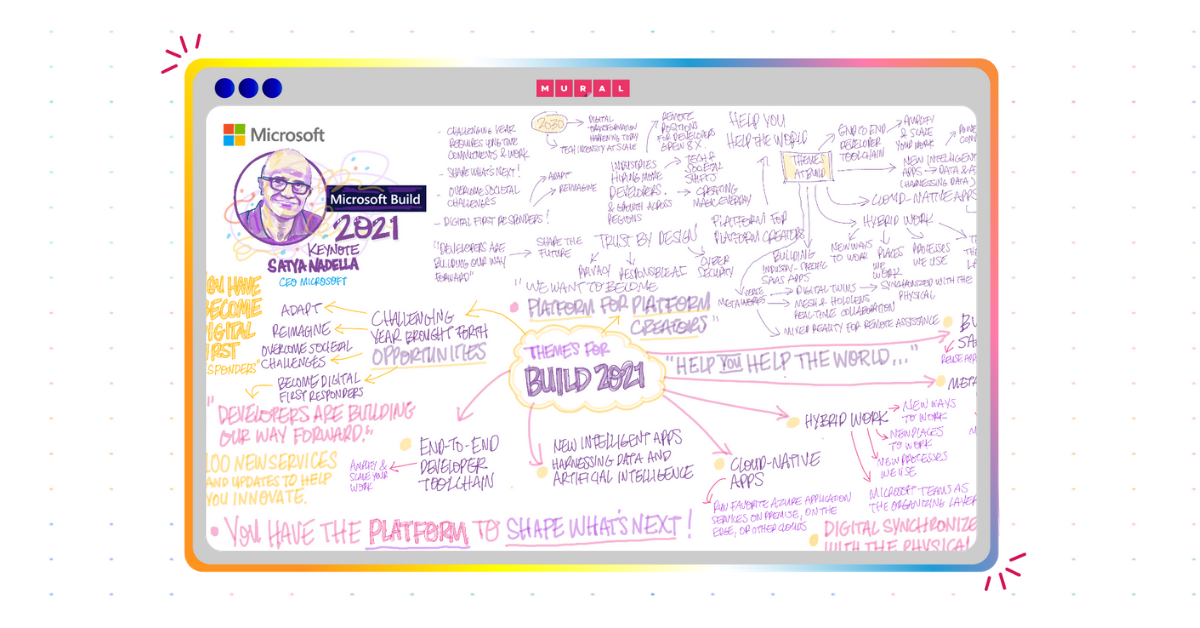 MURAL
Microsoft
Microsoft Build
2021
KEYNOTE
SATYA NADELLA
CEO MICROSOFT
- CHALLENGING YEAR
REQUIRES LONG TIME
COMMITMENTS & WORK
- SHARE WHAT'S NEXT!
- OVERCOME SOCIETAL
CHALLENGES
- DIGITAL FIRST RESPONDERS!
"DEVELOPERS ARE
BUILDING OUR WAY
FORWARD"
SHARE THE
FUTURE
2030
DIGITAL
TRANSFORMATION
HAPPENING TODAY
TECH INTENSITY AT SCALE
ADAPT
REIMAGINE
REMOTE
POSITIONS
FOR DEVELOPERS
OPEN 8X
INDUSTRIES
HIRING MORE
DEVELOPERS.
& GROWTH ACROSS
REGIONS
TECH &
SOCIETAL
SHIFTS
CREATING
MAGIC EVERYDAY
HELP YOU
HELP THE WORLD
THEMES
AT BUILD
END TO END
DEVELOPER
TOOLCHAIN
AMPLIFY
& SCALE
YOUR WORK
NEW INTELLIGENT
APPS
DATA & A
(HARNESSING DATA)
CLOUD-NATIVE APPS
HYBRID WORK
NEW WAYS
TO WORK
PLACES
WE
WORK
PROCESSES
WE USE
TRUST BY DESIGN
PRIVACY
RESPONSIBLE AI
CYBER
SECURITY
PLATFORM FOR
PLATFORM CREATORS
BUILDING
INDUSTRY-SPECIFIC
SAAS APPS
CREATE
METAVERSES
DIGITAL TWINS
SYNCHRONIZED WITH THE
PHYSICAL
MESH & HOLOLENS
REAL-TIME COLLABORATION
MIXED REALITY FOR REMOTE ASSISTANCE
"WE WANT TO BECOME
PLATFORM FOR PLATFORM
CREATORS"
THEMES FOR
BUILD 2021
"HELP YOU HELP THE WORLD..."
YOU HAVE
BECOME
DIGITAL
FIRST
RESPONDERS"
CHALLENGING
YEAR BROUGHT FORTH
OPPORTUNITIES
ADAPT
REIMAGINE
OVERCOME SOCIETAL
CHALLENGES
BECOME DIGITAL
FIRST RESPONDERS
"DEVELOPERS ARE BUILDING
OUR WAY FORWARD."
100 NEW SERVICES
AND UPDATES TO HELP
YOU INNOVATE.
END-TO-END
DEVELOPER
TOOLCHAIN
AMPLIFY &
SCALE YOUR
WORK
NEW INTELLIGENT APPS
HARNESSING DATA AND
ARTIFICIAL INTELLIGENCE
CLOUD-NATIVE
APPS
RUN FAVORITE AZURE APPLICATION
SERVICES ON PREMISE, ON THE
EDGE, OR OTHER CLOUDS
HYBRID WORK
NEW WAYS
TO WORK
NEW PLACES
TO WORK
NEW PROCESSES
WE USE
MICROSOFT TEAMS AS
THE ORGANIZING LAYER
DIGITAL SYNCHRONIZE
WITH THE PHYSICAL
• YOU HAVE THE PLATFORM TO SHAPE WHAT'S NEXT!